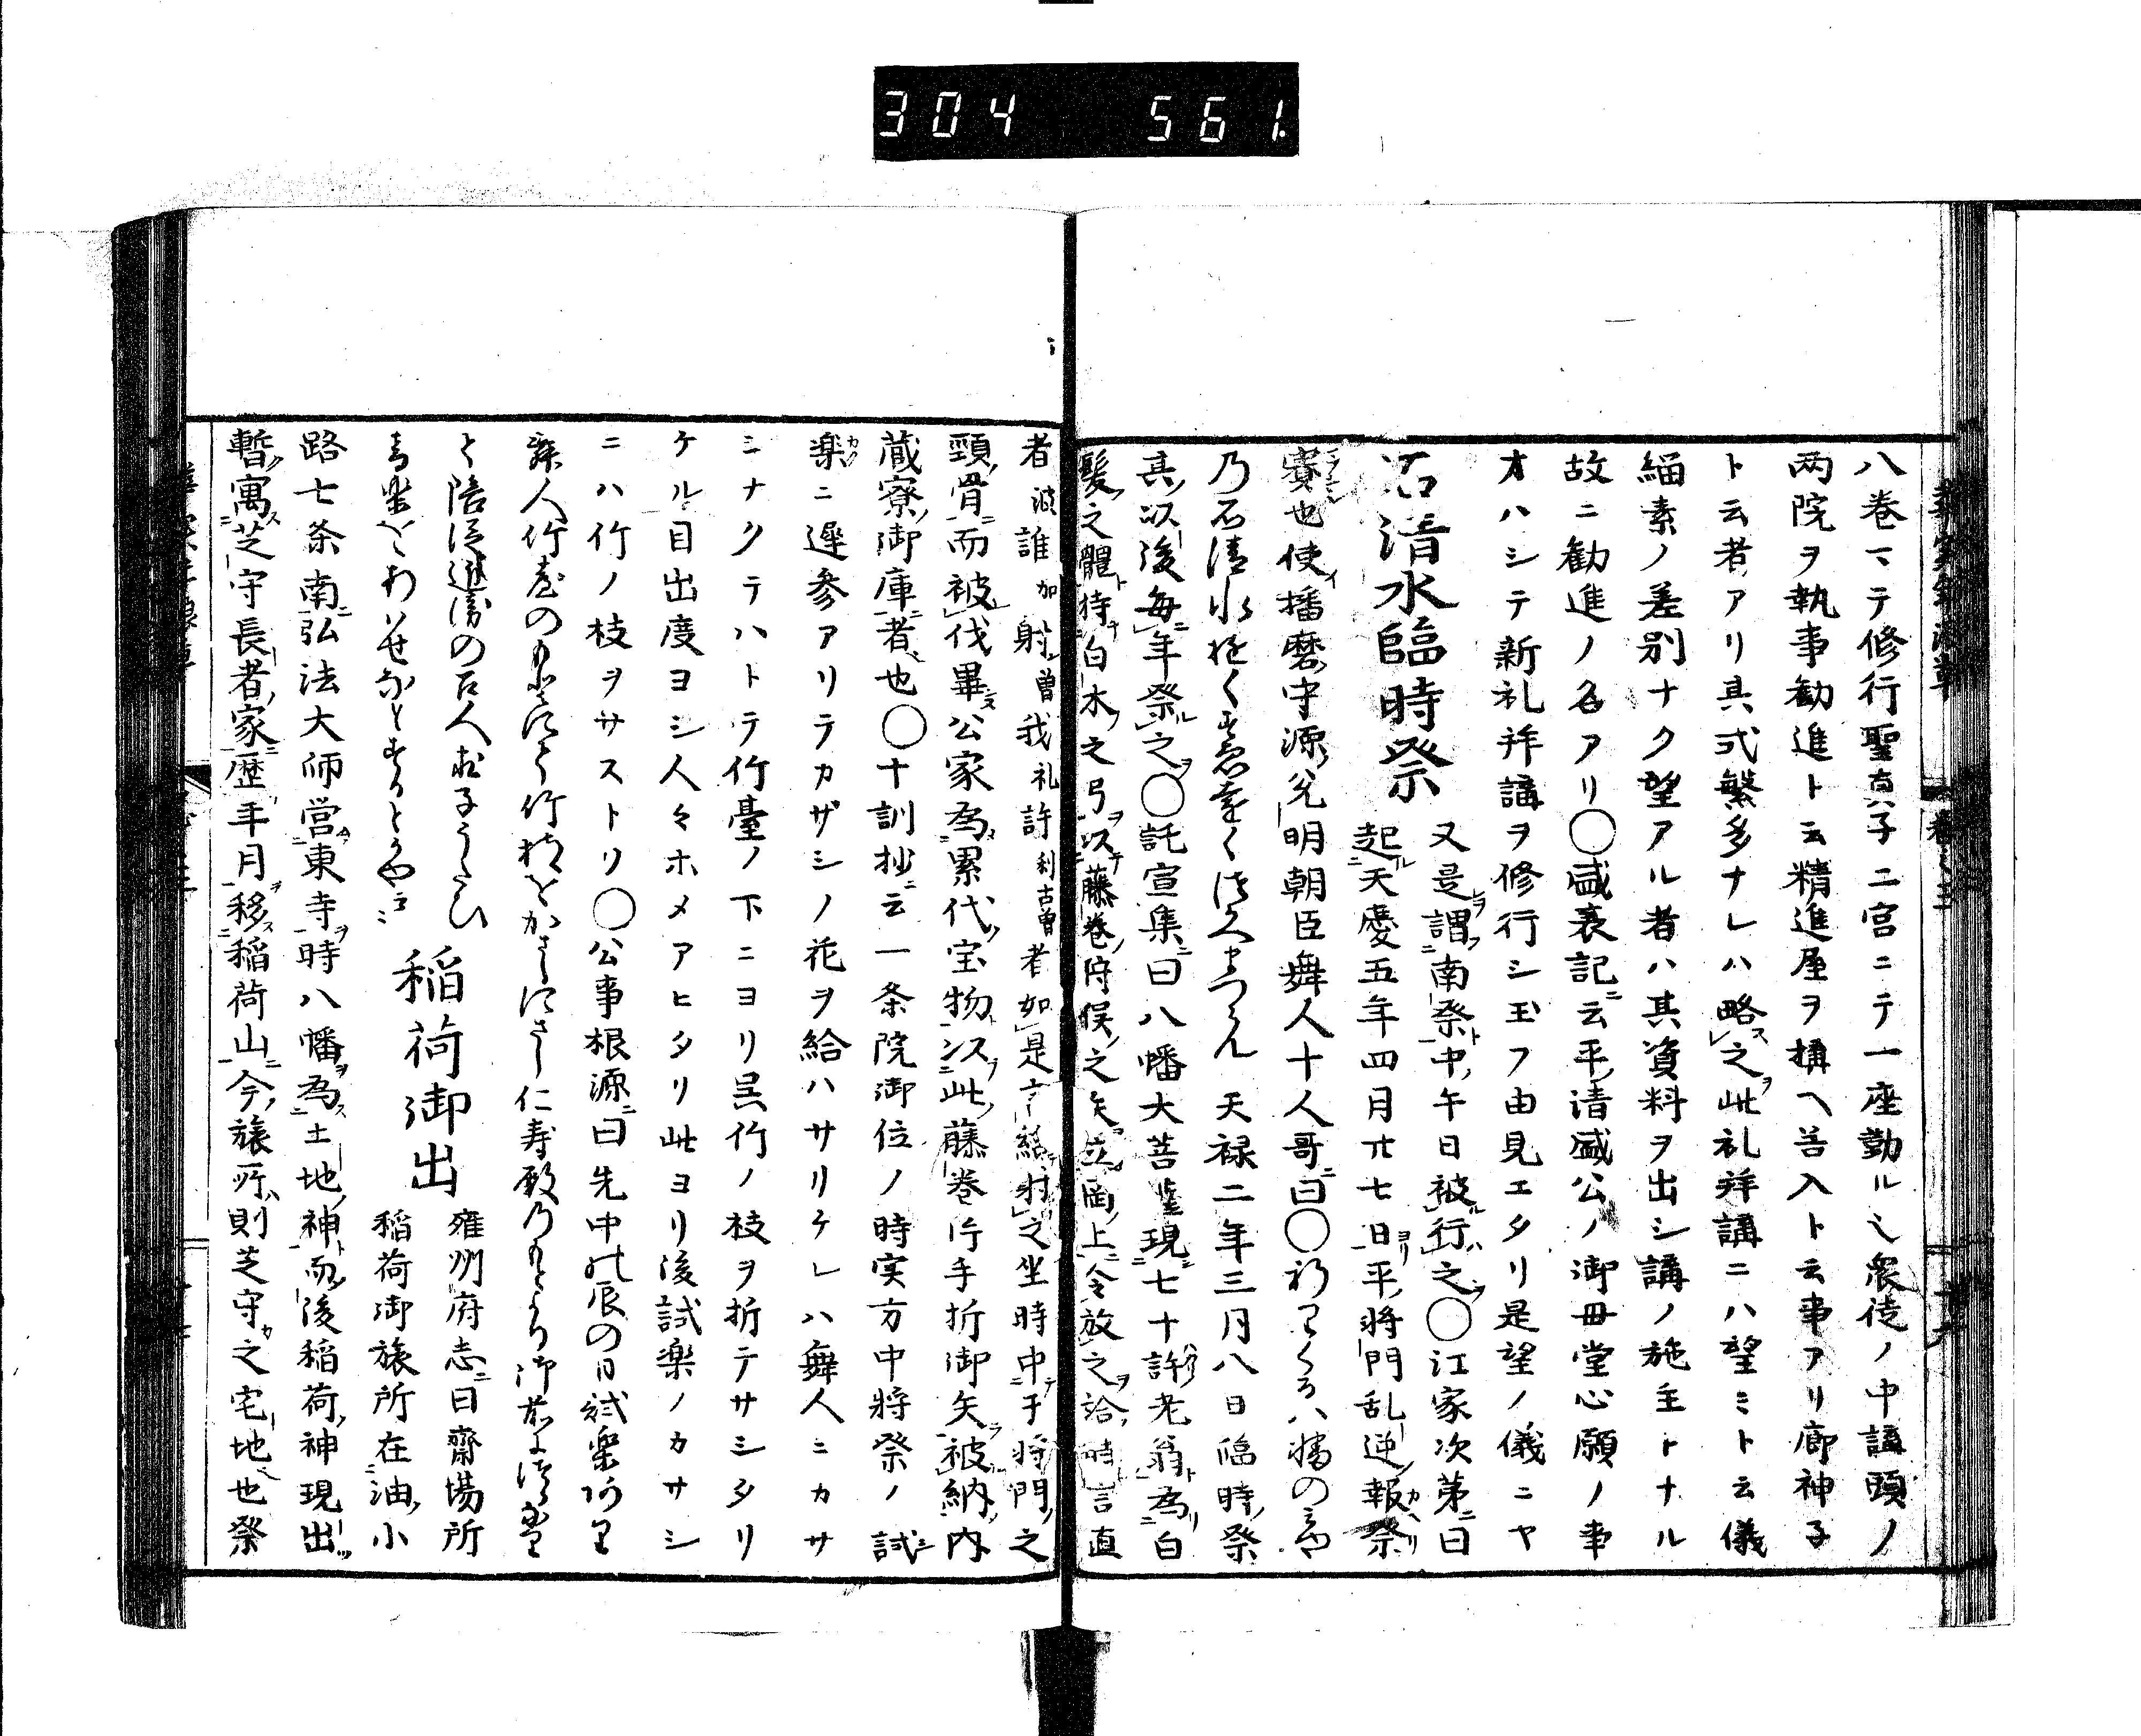 304 561.
八巻マテ修行聖真子二宮ニテ一座勤ル也衆徒ノ中講頭ノ
両院ヲ執事勧進ト云精進屋ヲ搆ヘ苦入ト云事アリ廊神子
ト云者アリ其式繁多ナレハ略ス之ヲ此礼拝講ニハ望ミト云儀
緇素ノ差別ナク望アル者ハ其資料ヲ出シ講ノ施主トナル
故ニ勧進ノ名アリ〇盛衰記ニ云平清盛公ノ御母堂心願ノ事
オハシテ新礼拝講ヲ修行シ玉フ由見エタリ是望ノ儀ニヤ
石清水臨時祭
又是ヲ謂フ南祭ト中ノ午日被行ハ之ヲ〇江家次第ニ曰
起ル天慶五年四月廿七日ヨリ平将門乱逆ノ報カヘリ祭
賽也使ハ播磨守源允明朝臣舞人十人哥ニ曰〇祈りくる八幡の宮
乃石清水 天禄二年三月八日臨時ノ祭
其以後毎年祭ル之ヲ〇託宣集ニ曰八幡大菩薩現ニ七十許ハカリノ老翁ト為リ白
髪之體ト持白木之弓ヲ以テ藤巻狩俣之矢立岡ノ上ニ令放之ヲ給時言直
者波誰加射曽我礼許利古曽者如是言給テ射之坐時中テ于将門之
頸ノ骨ニ而被伐畢ヌ公家為累代ノ宝物ト此藤巻片手折御矢ヲ被納内
蔵寮ノ御庫ニ者也〇十訓抄ニ云一条院御位ノ時実方中将祭ノ試シ
楽カクニ遅参アリテカザシノ花ヲ給ハサリケレハ舞人ニカサ
シナクテハトテ竹臺ノ下ニヨリ呉竹ノ枝ヲ折テサシタリ
ケル目出度ヨシ人々ホメアヒタリ此ヨリ後試楽ノカサシ
ニハ竹ノ枝ヲサストリ〇公事根源ニ曰先中の辰の日試楽あり
舞人竹臺のもとにて竹枝をかさしにさし仁寿殿乃もとより御前に
と陪従進南の召人拍子うたひ
稲荷御出
雍州府志ニ曰齋場所
稲荷御旅所在油ノ小
路七条南ニ弘法大師営ム東寺ヲ時八幡ヲ為ス土地ノ神ト而後稲荷ノ神現出
暫ク寓ス芝守長者ノ家ニ歴年月ヲ移ス稲荷山ニ今ノ旅所ハ則芝守カ之宅地也祭